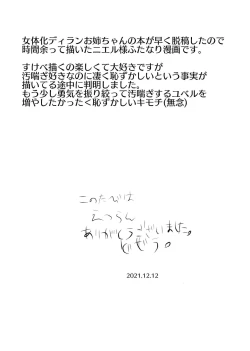 女体化ディランお姉ちゃんの本が早く脱稿したので
時間余って描いたニエル様ふたなり漫画です。
すけべ描くの楽しくて大好きですが
汚喘ぎ好きなのに凄く恥ずかしいという事実が
描いてる途中に判明しました。
もう少し勇気を振り絞って汚喘ぎするユベルを
増やしたかった<恥ずかしいキモチ(無念)
このたびは
えつらん
ありがとうございました。
どぞう。
2021.12.12